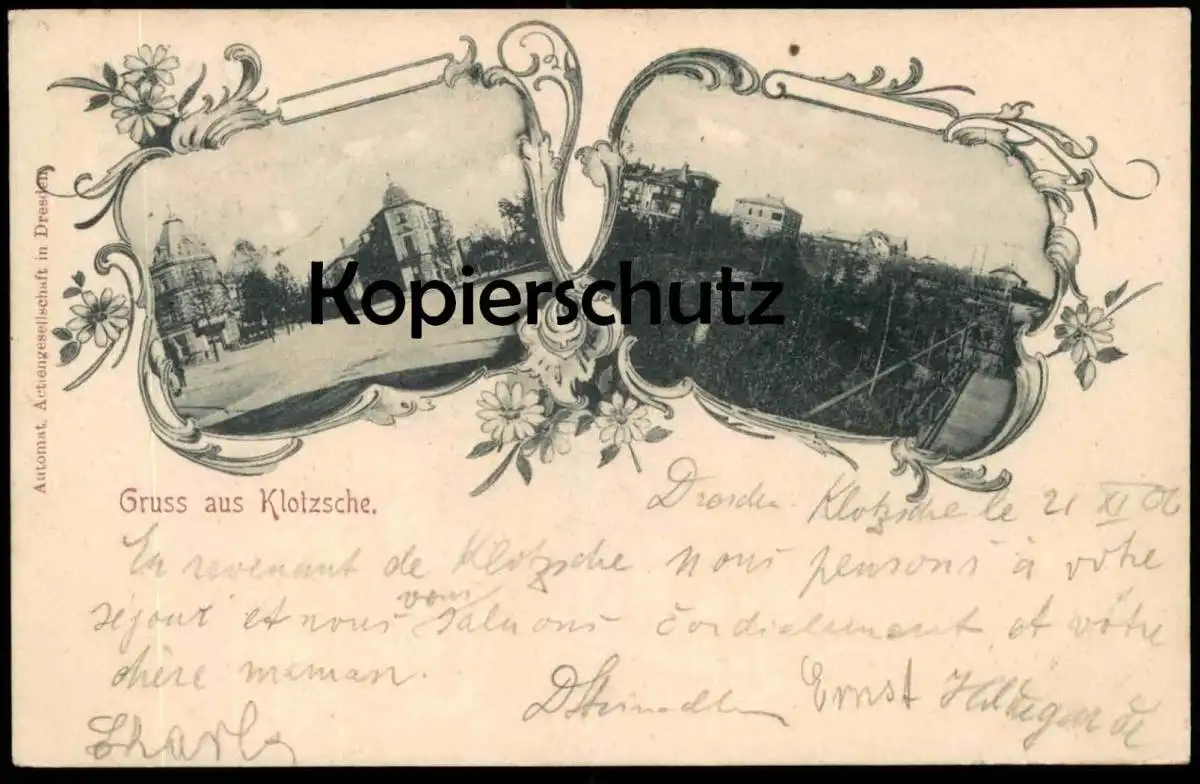 Automat, Actiengesellschaft in Dresden
Kopierschutz
Gruss aus Klotzsche.
Dresden Klotzsche le 21 XI 06
En revenant de Klotzsche nous pensons à vôtre
séjour et nous vous saluons cordialement et vôtre
chère maman.
Ernst Hildegarde